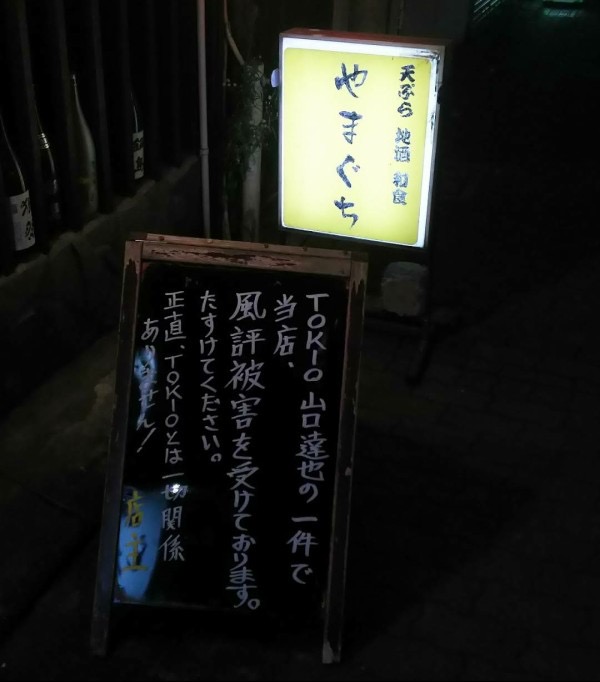 天ぷら 地酒 和食
やまぐち
TOKIO 山口達也の一件で
当店、
風評被害を受けております。
たすけてください。
正直、TOKIOとは一切関係
ありません!
店主